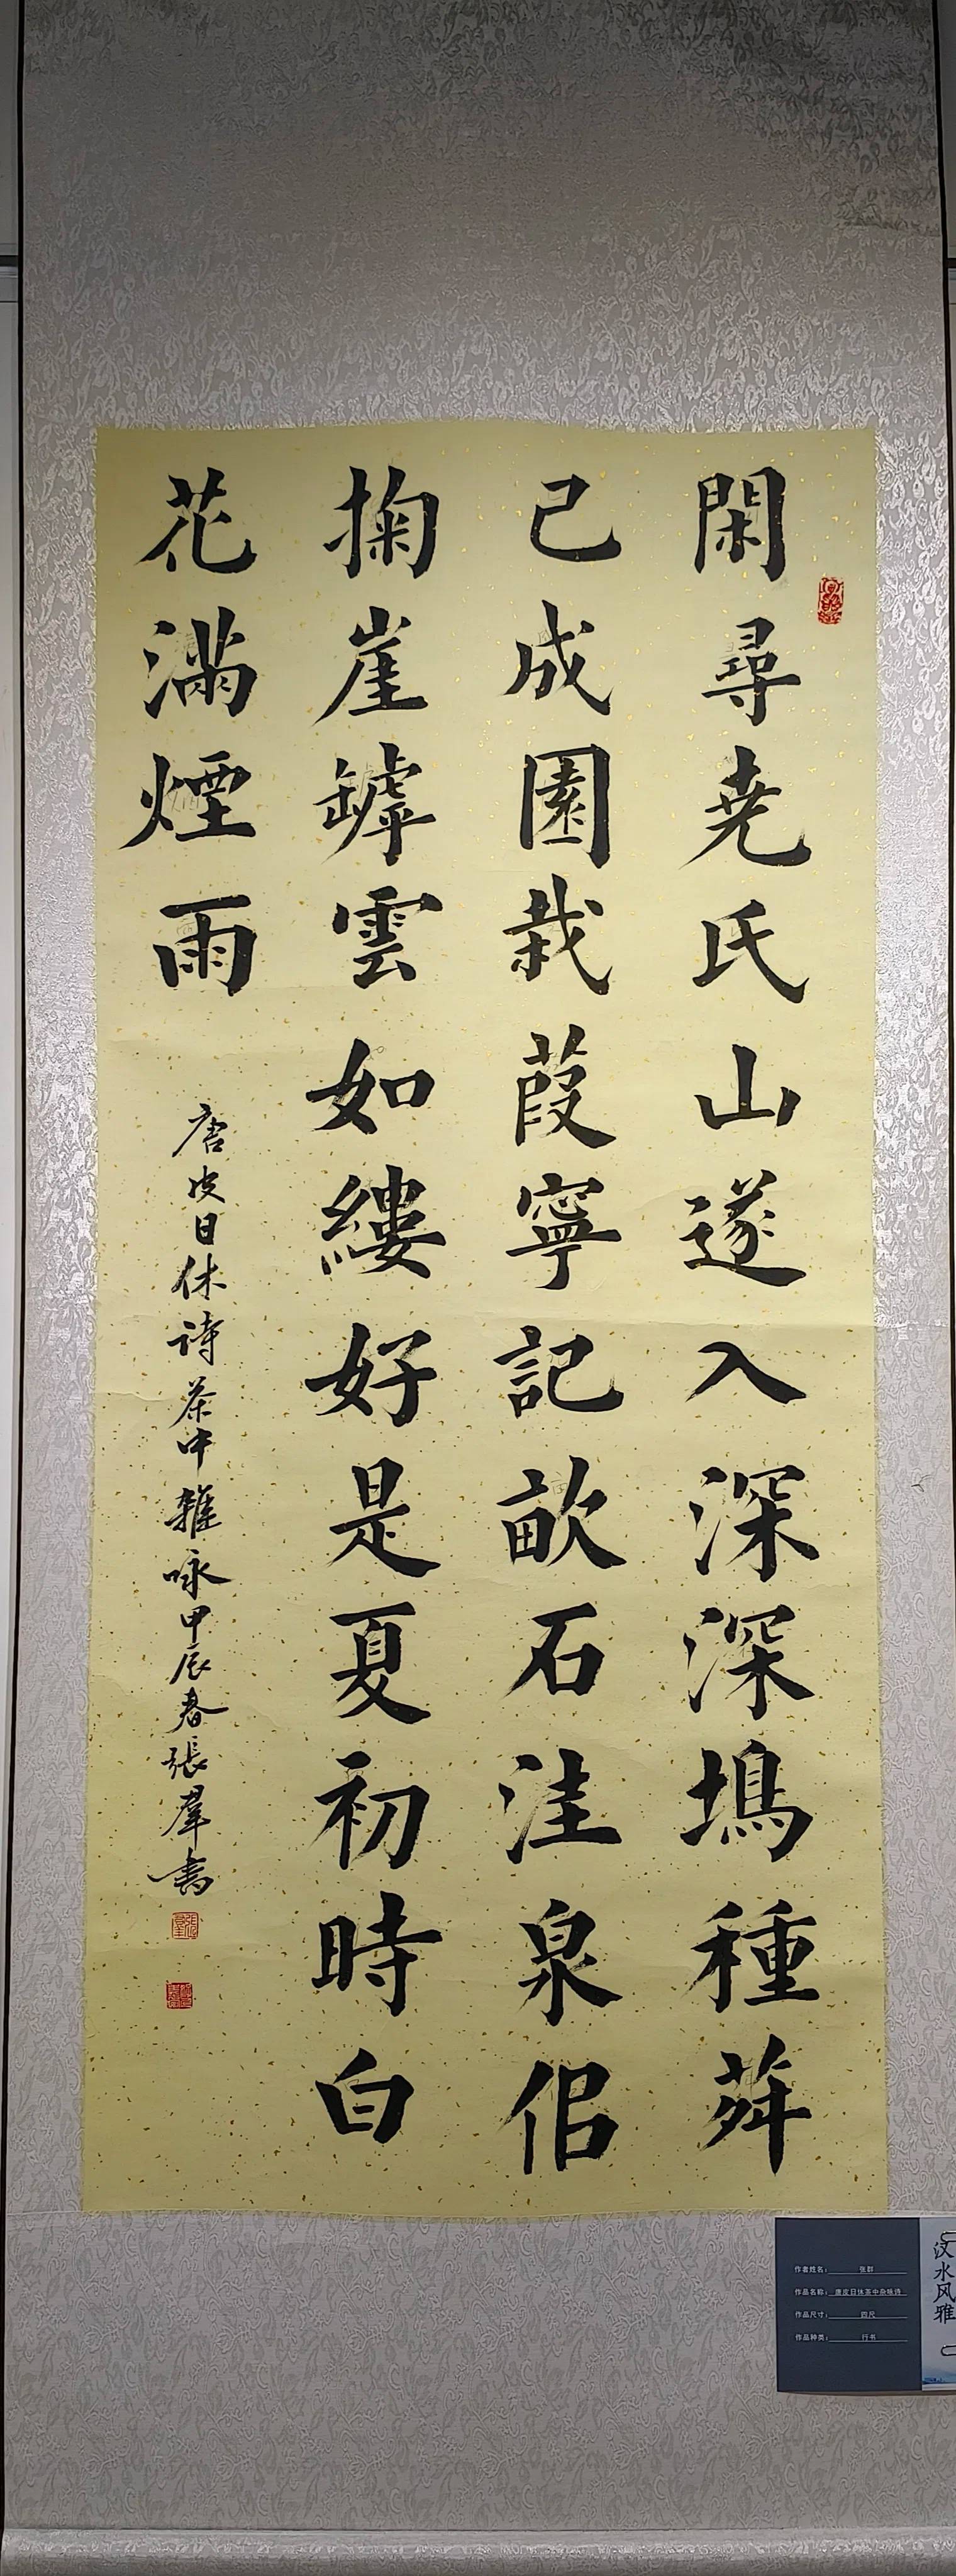 閑尋尭氏山遂入深深塢種荈
已成園栽葭寧記畝石洼泉佀
掬崖罅雲如縷好是夏初時白
花滿煙雨
唐皮日休诗茶中雜咏甲辰春張群书
作者姓名：张群
作品名称：唐皮日休茶中杂咏诗
作品尺寸：四尺
作品种类：行书
汶水风雅